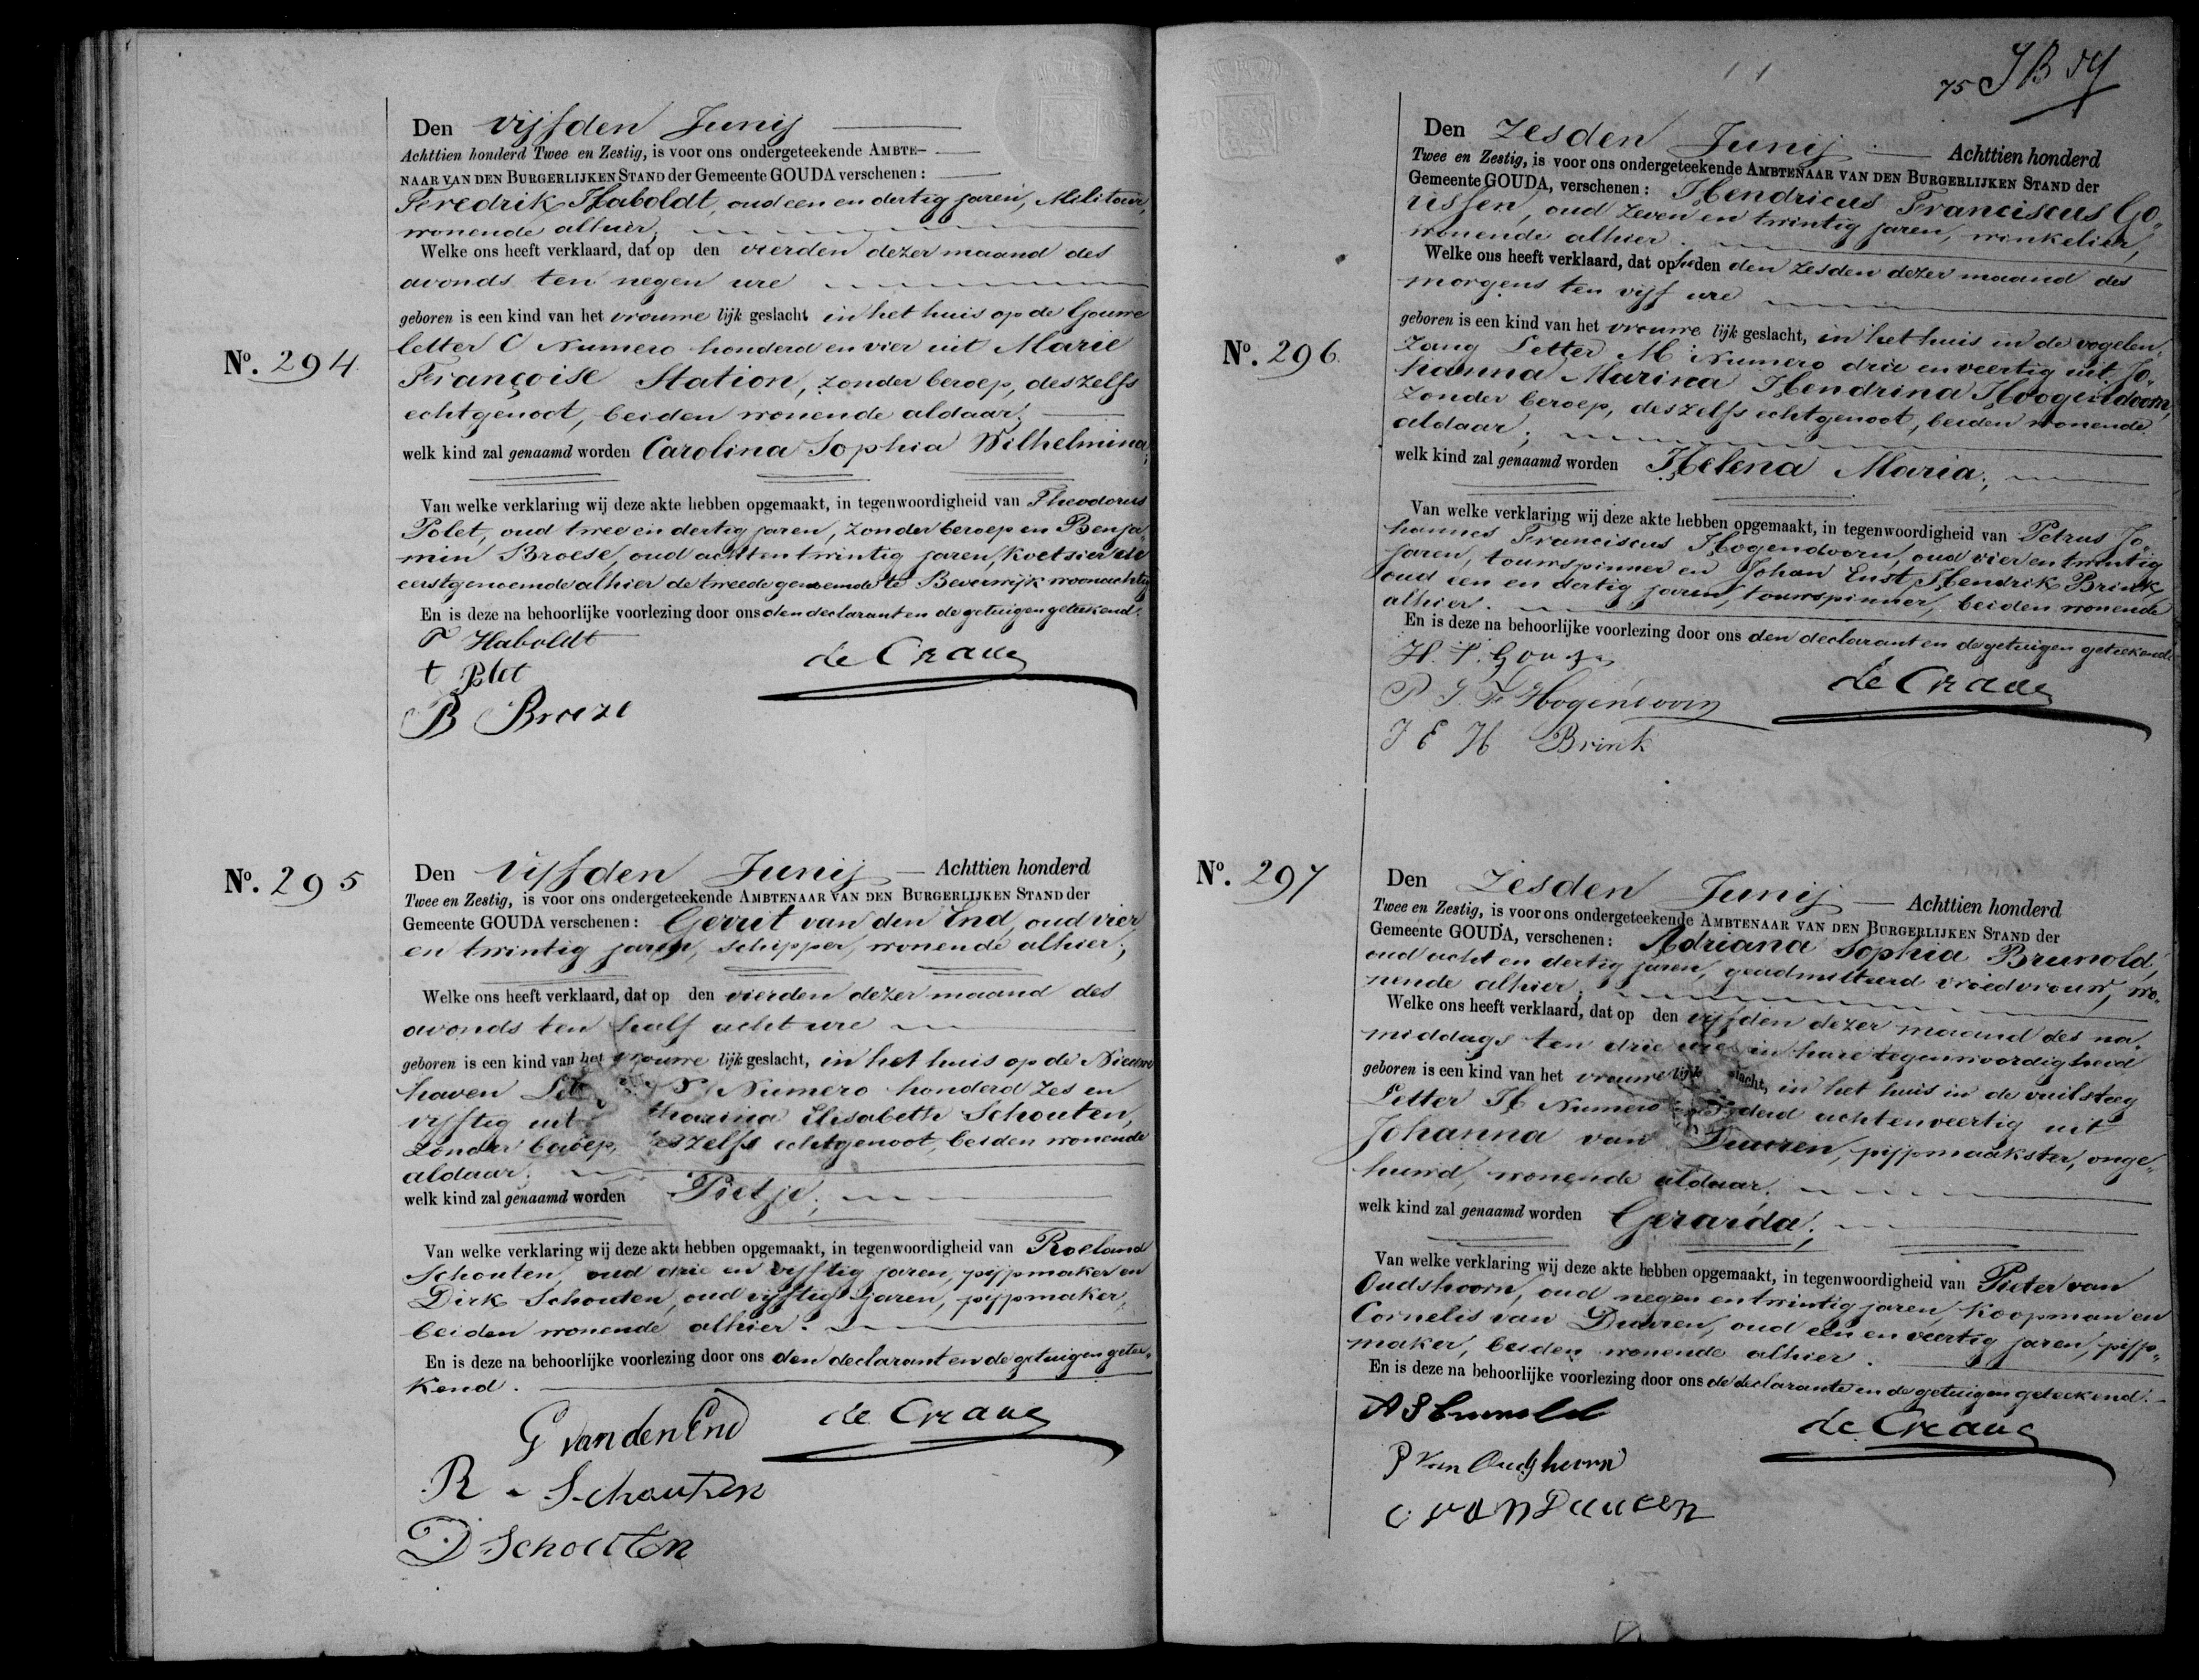 Den vijfden Junij
Achttien honderd Twee en Zestig, is voor ons ondergeteekende AMBTE-
NAAR VAN DEN BURGERLIJKEN STAND der Gemeente GOUDA verschenen:
Fredrik Haboldt, oud een en dertig jaren, Militair,
wonende alhier;
Welke ons heeft verklaard, dat op den vierden dezer maand des
avonds ten negen ure
geboren is een kind van het vrouwe lijk geslacht in het huis op de Gouwe
No. 294. letter C Numero honderd en vier uit Marie
Françoise Station, zonder beroep, deszelfs
echtgenoot, beiden wonende aldaar;
welk kind zal genaamd worden Carolina Sophia Wilhelmina;
Van welke verklaring wij deze akte hebben opgemaakt, in tegenwoordigheid van Theodorus
Polet, oud twee en dertig jaren, zonder beroep en Benja„
min Broese, oud acht en twintig jaren, koetsier de
eerstgenoemde alhier de tweede genoemde te Beverwijk woonachtig
En is deze na behoorlijke voorlezing door ons den declarant en de getuigen geteekend.
F Haboldt
t Polet
de Craau
B Broeze
No. 295
Den Vijfden Junij Achttien honderd
Twee en Zestig, is voor ons ondergeteekende AMBTENAAR VAN DEN BURGERLIJKEN STAND der
Gemeente GOUDA verschenen: Gerrit van den End, oud vier
en twintig jaren, schipper, wonende alhier;
Welke ons heeft verklaard, dat op den vierden dezer maand des
avonds ten half acht ure
geboren is een kind van het vrouwe lijk geslacht, in het huis op de Nieuwe
haven Numero honderd zes en
vijftig uit Elisabeth Schouten,
zonder beroep, deszelfs echtgenoot, beiden wonende
aldaar;
welk kind zal genaamd worden Pietje;
Van welke verklaring wij deze akte hebben opgemaakt, in tegenwoordigheid van Roeland
Schouten, oud drie en vijftig jaren, pijpmaker en
Dirk Schouten, oud vijftig jaren, pijpmaker,
beiden wonende alhier.
En is deze na behoorlijke voorlezing door ons den declarant en de getuigen getee„
kend.
G van den End
de Craau
R Schouten
D Schouten
75
Den zesden Junij Achttien honderd
Twee en Zestig, is voor ons ondergeteekende AMBTENAAR VAN DEN BURGERLIJKEN STAND der
Gemeente GOUDA, verschenen: Hendricus Franciscus Go„
, oud zeven en twintig jaren, winkelier,
wonende alhier.
Welke ons heeft verklaard, dat op heden den zesden dezer maand des
morgens ten vijf ure
geboren is een kind van het vrouwe lijk geslacht, in het huis in de vogelen„
No. 296. zang Letter M Numero drie en veertig uit Jo„
hanna Marina Hendrina Hoogendoorn,
zonder beroep, deszelfs echtgenoot, beiden wonende
aldaar;
welk kind zal genaamd worden Helena Maria;
Van welke verklaring wij deze akte hebben opgemaakt, in tegenwoordigheid van Petrus Jo„
hannes Franciscus Hogendoorn, oud vier en twintig
jaren, touwspinner en Johan Enst Hendrik Brink,
oud een en dertig jaren, touwspinner, beiden wonende
alhier.
En is deze na behoorlijke voorlezing door ons den declarant en de getuigen geteekend.
H. F.
de Craau
P J. F Hogendoorn
J E H Brink
No. 297
Den Zesden Junij Achttien honderd
Twee en Zestig, is voor ons ondergeteekende AMBTENAAR VAN DEN BURGERLIJKEN STAND der
Gemeente GOUDA, verschenen: Adriana Sophia Brunold,
oud acht en dertig jaren, geadmitteerd vroedvrouw, wo„
nende alhier;
Welke ons heeft verklaard, dat op den vijfden dezer maand des na„
middags ten drie ure in hare tegenwoordigheid
geboren is een kind van het vrouwe lijk geslacht, in het huis in de vuilsteeg
Letter H Numero achtenveertig uit
Johanna van Duuren, pijpmaakster, onge„
huwd, wonende aldaar.
welk kind zal genaamd worden Gerarda;
Van welke verklaring wij deze akte hebben opgemaakt, in tegenwoordigheid van Pieter van
Oudshoorn, oud negen en twintig jaren, koopman en
Cornelis van Duuren, oud een en veertig jaren, pijp„
maker, beiden wonende alhier.
En is deze na behoorlijke voorlezing door ons de declarante en de getuigen geteekend.
A S Brunold
de Craau
P van Oudshoorn
C van Duuren